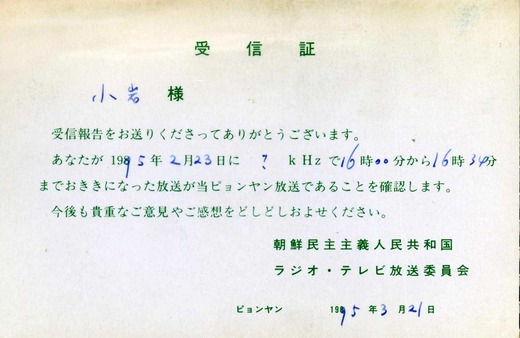 受信証
小岩 様
受信報告をお送りくださってありがとうございます。
あなたが 1995年2月23日に ? kHzで16時00分から16時34分
までおききになった放送が当ピョンヤン放送であることを確認します。
今後も貴重なご意見やご感想をどしどしおよせください。
朝鮮民主主義人民共和国
ラジオ・テレビ放送委員会
ピョンヤン 1995年3月21日